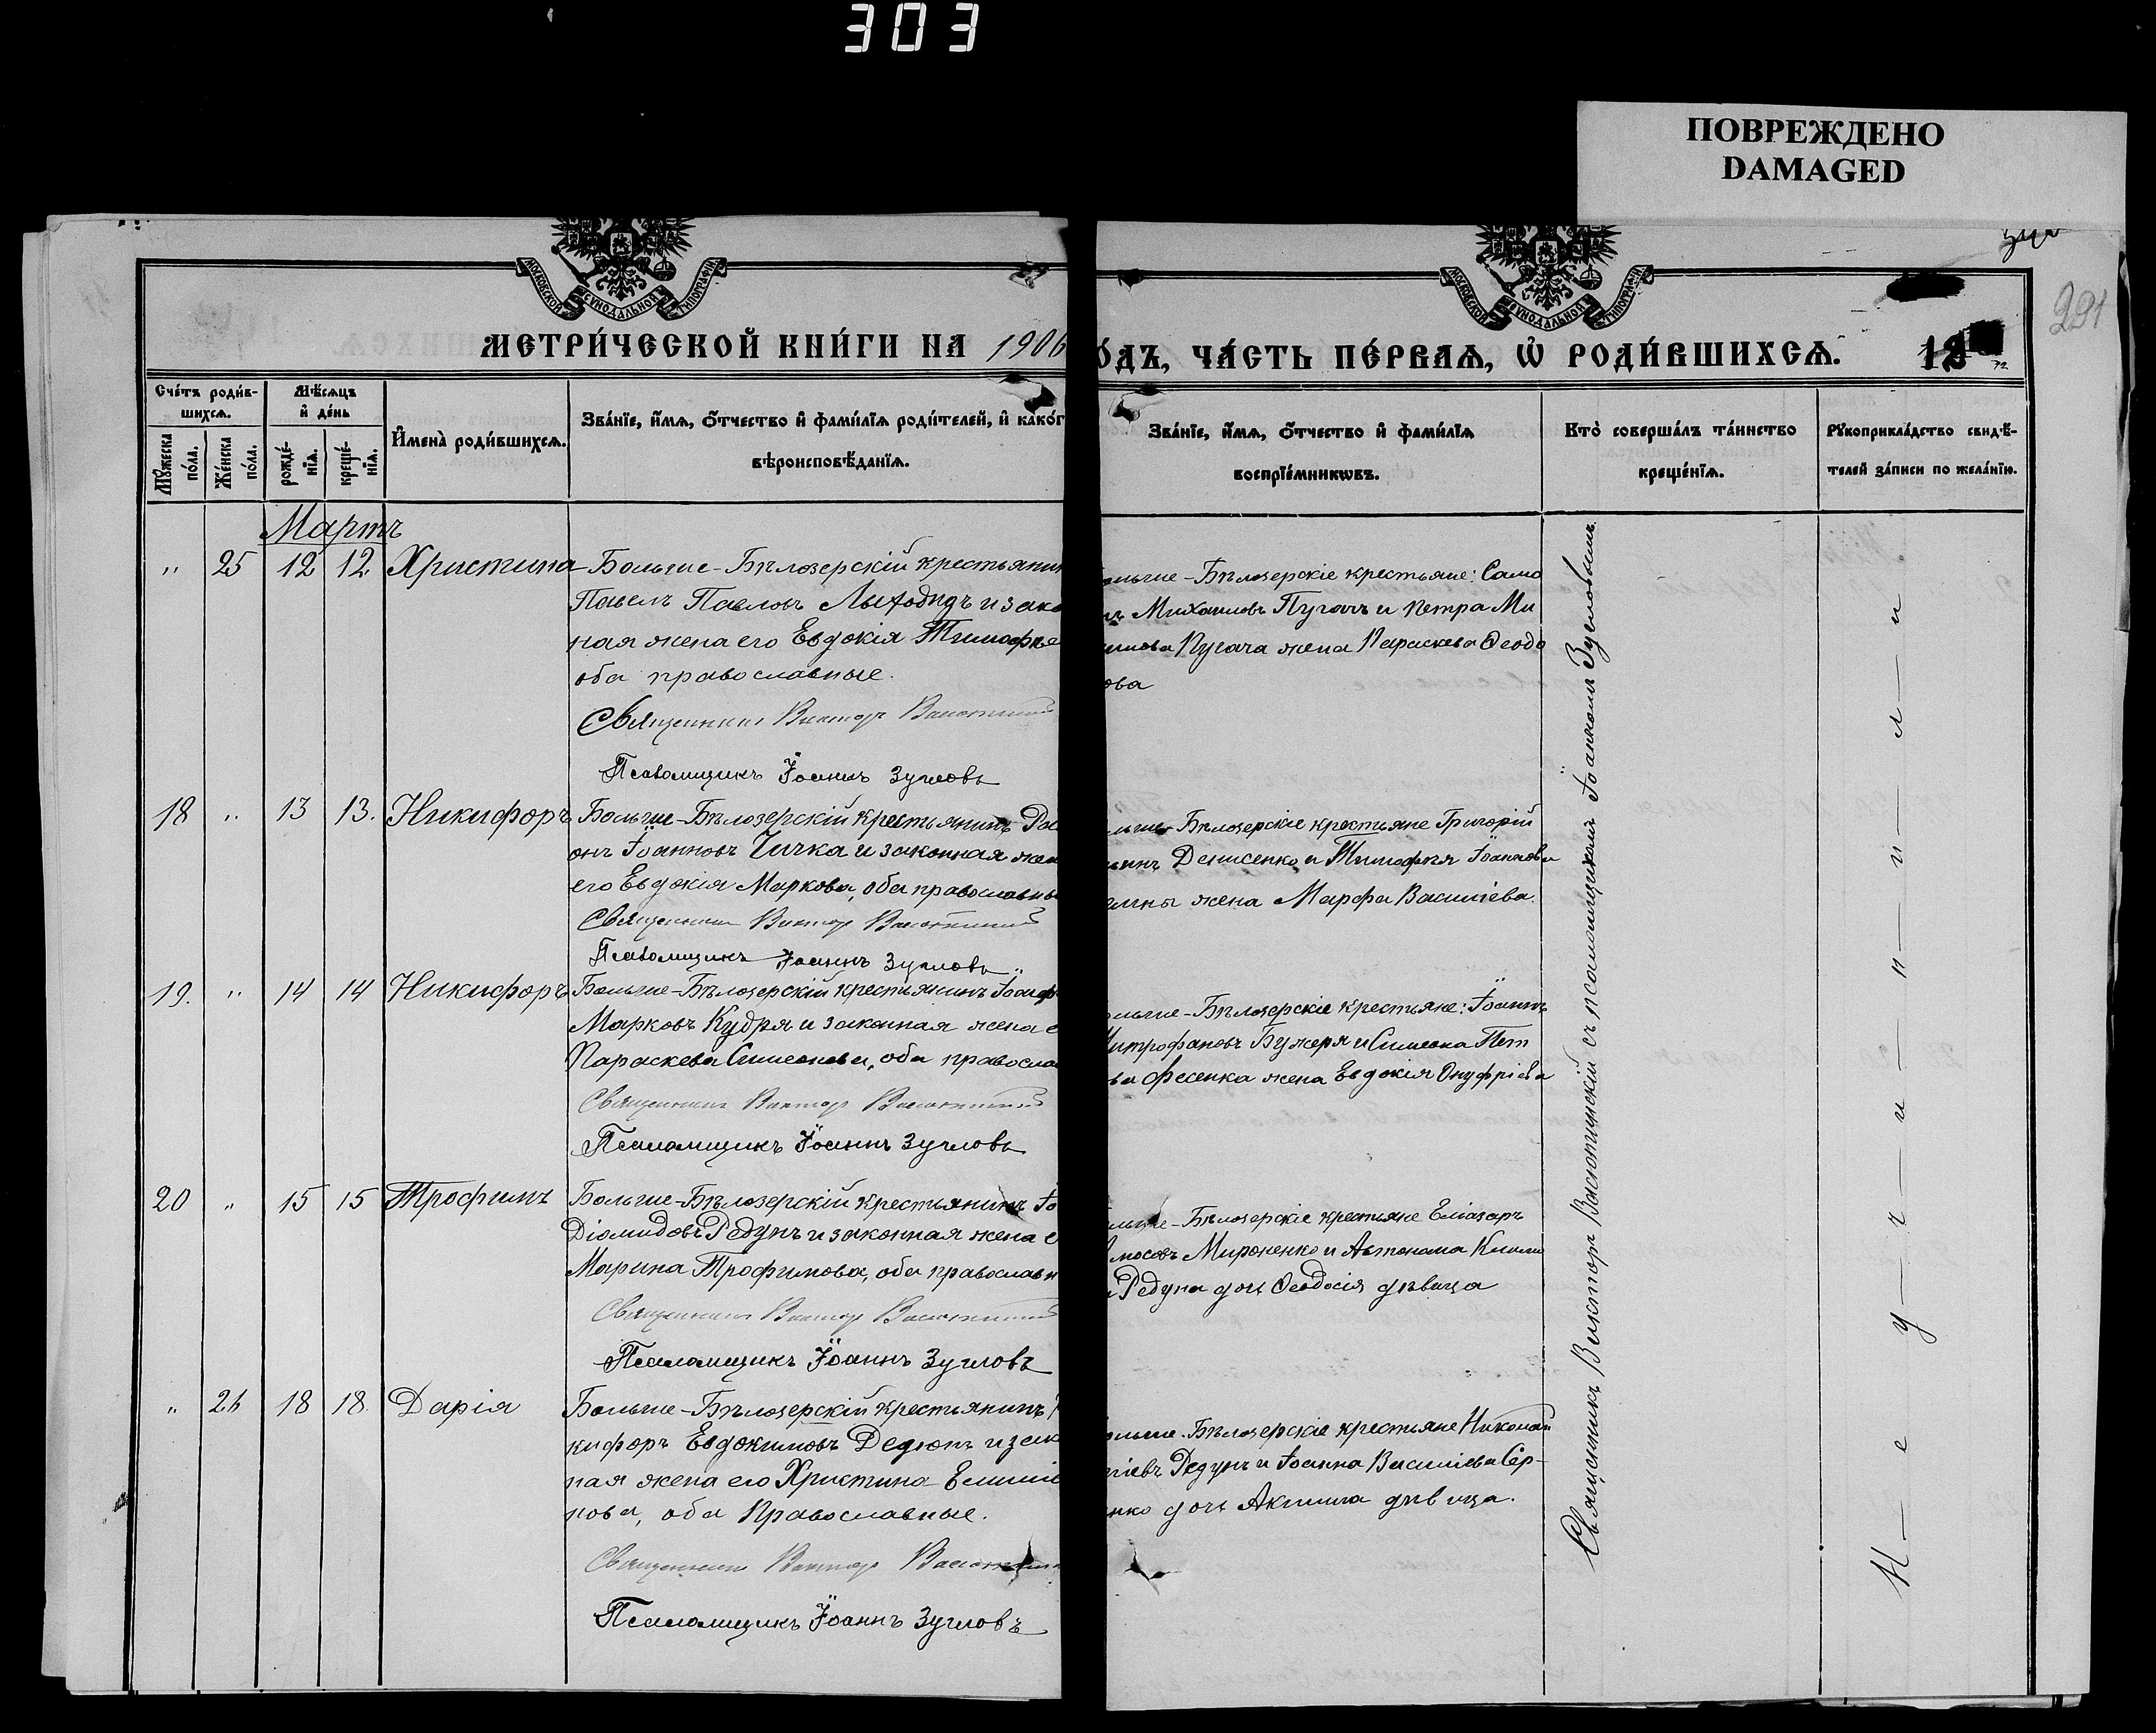 303
ПОВРЕЖДЕНО
DAMAGED
291
МОСКОВСКОЙ СѴНОДАЛЬНОЙ ТИПОГРАФІИ
МОСКОВСКОЙ СѴНОДАЛЬНОЙ ТИПОГРАФІИ
МЕТРИ́ЧЕСКОЙ КНИ́ГИ НА 1906
О́ДЪ, ЧА́СТЬ ПЕ́РВАѦ, Ѽ РОДИ́ВШИХСѦ.
Сче́тъ роди́в-
шихсѧ.
Мѣ́сѧцъ
и҆ де́нь
Мꙋ́жеска по́ла.
Же́нска по́ла.
рожде́-
нїѧ.
креще́-
нїѧ.
И҆мена̀ роди́вшихсѧ.
Зва́нїе, и҆́мѧ, ѻ҆́тчество и҆ фами́лїѧ роди́телей, и҆ како́г
вѣроисповѣ́данїѧ.
Зва́нїе, и҆́мѧ, ѻ҆́тчество и҆ фами́лїѧ
воспрїе́мникѡвъ.
Кто̀ соверша́лъ та́инство
креще́нїѧ.
Рꙋкоприкла́дство свидѣ́-
телей за́писи по жела́нїю.
Мартъ
" 25 12 12. Христина
Больше-Бѣлозерскій крестьянин
Павелъ Павловъ Лыходидъ и зако
ная жена его Евдокія Тимофѣе
оба православные.
Священникъ Викторъ
Псаломщикъ Іоаннъ Зугловъ
ольше-Бѣлозерскіе крестьяне: Само
Михаиловъ Пугачъ и Петра Ми
Пугача жена Параскева Ѳеодо
ова
18 " 13 13. Никифоръ
Больше-Бѣлозерскій крестьянинъ
онъ Іоанновъ Чичка и законная жен
его Евдокія Маркова, оба православны
Священникъ Викторъ
Псаломщикъ Іоаннъ Зугловъ
льше-Бѣлозерскіе крестьяне Григорій
Денисенко и Тимофея Іоаннова
жена Марфа Василіева.
19. " 14 14 Никифоръ
Больше-Бѣлозерскій крестьянинъ Іосиф
Марковъ Кудря и законная жена е
Параскева Симеонова, оба правосла
Священникъ Викторъ
Псаломщикъ Іоаннъ Зугловъ
ольше-Бѣлозерскіе крестьяне: Іоаннъ
Митрофановъ Бужеря и Симеона Пет
ва Фесенка жена Евдокія Онуфріева
20 " 15 15 Трофимъ
Больше-Бѣлозерскій крестьянинъ Іо
Діомидовъ Редунъ и законная жена е
Марина Трофимова, оба православн
Священникъ Викторъ
Псаломщикъ Іоаннъ Зугловъ
льше-Бѣлозерскіе крестьяне Еліазаръ
Мироненко и Автонома Клими
Редуна дочь Ѳеодосія дѣвица
" 26 18 18. Дарія
Больше-Бѣлозерскій крестьянинъ
кифоръ Евдокимовъ Дедюпъ и зак
ная жена его Христина
нова, оба Православные.
Священникъ Викторъ
Псаломщикъ Іоаннъ Зугловъ
ольше-Бѣлозерскіе крестьяне Николай
Редунъ и Іоанна Василіева Сер-
нко дочь Акилина дѣвица.
Священникъ Викторъ съ псаломщикомъ Іоанномъ Зугловымъ.